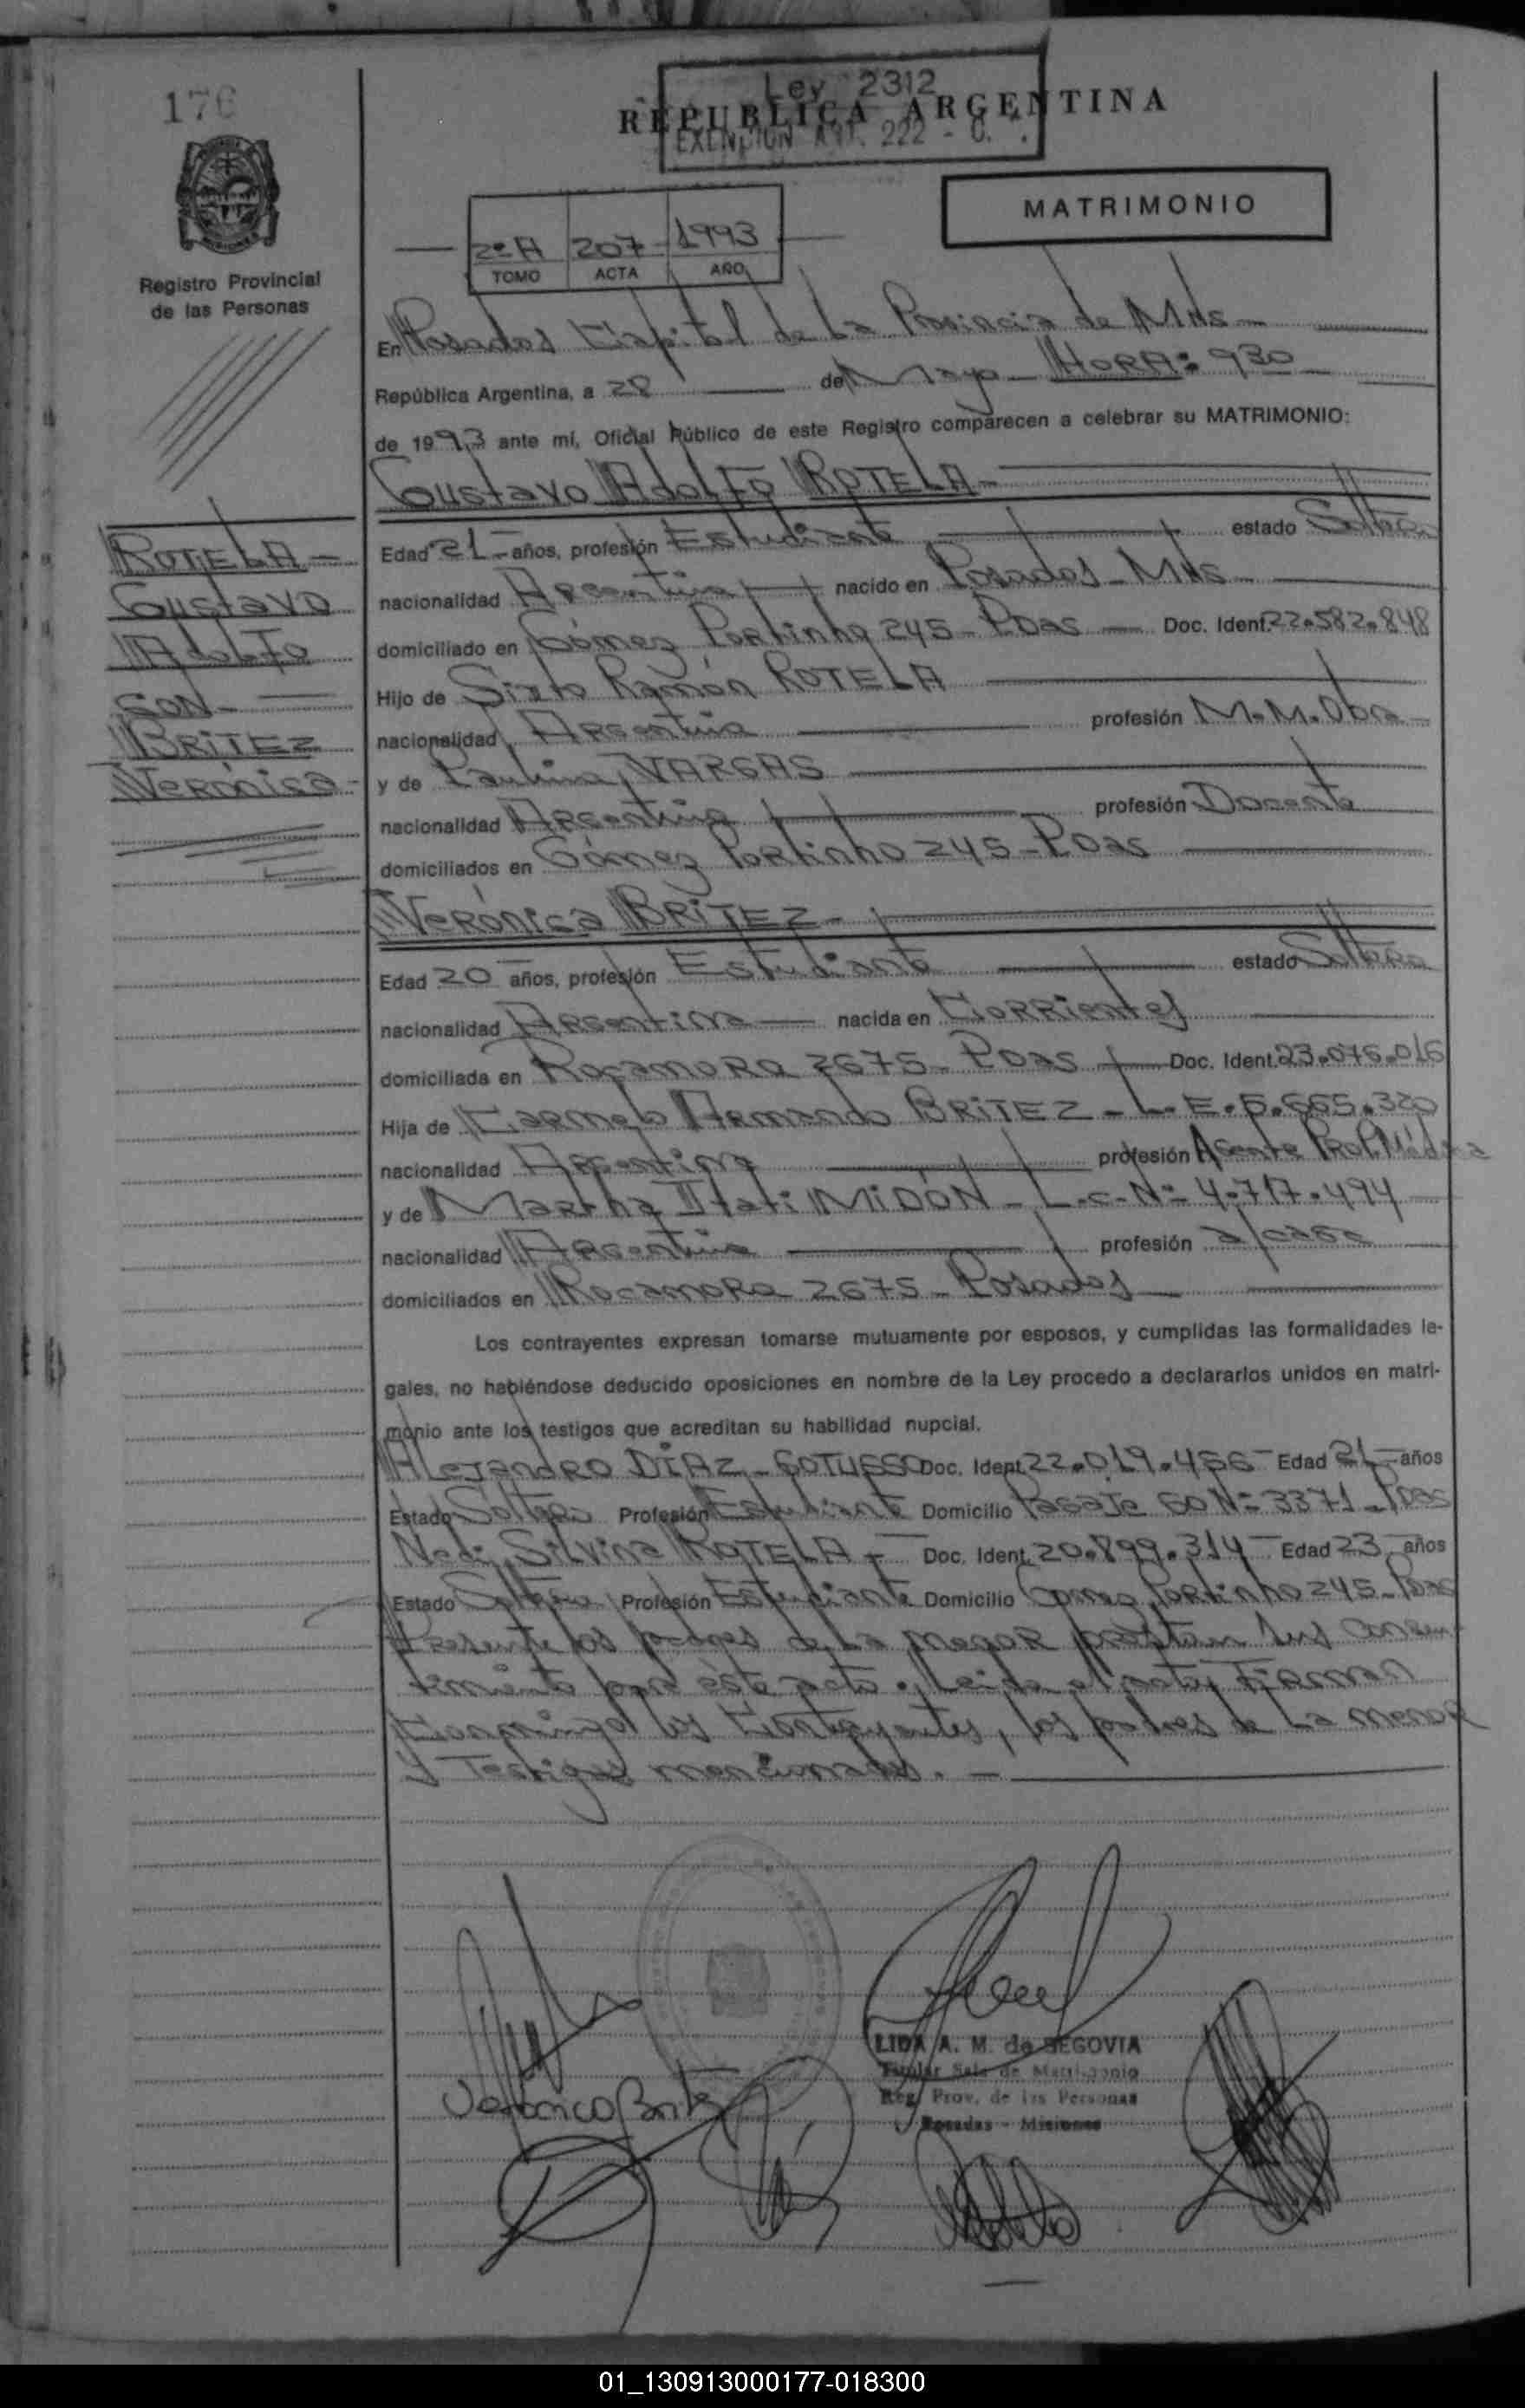 176
Ley 2312
REPUBLICA ARGENTINA
EXENCION ART. 222 - C.
MATRIMONIO
2º A 207 - 1993
TOMO ACTA AÑO
Registro Provincial
de las Personas
En Posadas Capital de La Provincia de Mnes -
República Argentina, a 28 de Mayo - HORA: 930 -
de 1993 ante mí, Oficial Público de este Registro comparecen a celebrar su MATRIMONIO:
Gustavo Adolfo ROTELA -
ROTELA -
Gustavo
Adolfo
CON -
BRITEZ
Verónica -
Edad 21 - años, profesión Estudiante estado Soltero
nacionalidad Argentina nacido en Posadas - Mnes
domiciliado en Gómez Portinho 245 - Pdas - Doc. Ident. 22.582.848
Hijo de Sixto Ramón ROTELA
nacionalidad Argentina profesión M.M. Obra
y de Paulina VARGAS
nacionalidad Argentina profesión Docente
domiciliados en Gómez Portinho 245 - Pdas
Verónica BRITEZ -
Edad 20 años, profesión Estudiante estado Soltera
nacionalidad Argentina nacida en Corrientes
domiciliada en Rocamora 2675 - Pdas Doc. Ident. 23.076.016
Hija de Carmelo Armando BRITEZ - L.E. 5.665.320
nacionalidad Argentina profesión Agente Prop. Médica
y de Martha Itati MIDÓN - L.C. Nº 4.717.494
nacionalidad Argentina profesión a/casa
domiciliados en Rocamora 2675 - Posadas
Los contrayentes expresan tomarse mutuamente por esposos, y cumplidas las formalidades le-
gales, no habiéndose deducido oposiciones en nombre de la Ley procedo a declararlos unidos en matri-
monio ante los testigos que acreditan su habilidad nupcial.
Alejandro DÍAZ - COTUSSO Doc. Ident. 22.019.456 - Edad 21 - años
Estado Soltero Profesión Estudiante Domicilio Pasaje 60 Nº 3371 - Pdas
Silvina ROTELA - Doc. Ident. 20.899.314 - Edad 23 años
Estado Soltera Profesión Estudiante Domicilio Gomez Portinho 245 - Pdas
Presente los padres de la menor prestan sus consen-
timiento para este acto. Leida el acta, Firman
Conmigo los Contrayentes, los padres de La menor
y Testigos mencionados. -
LIDA A. M. de SEGOVIA
Titular Sala de Matrimonio
Reg. Prov. de las Personas
Posadas - Misiones
Veronica Britez
01_130913000177-018300